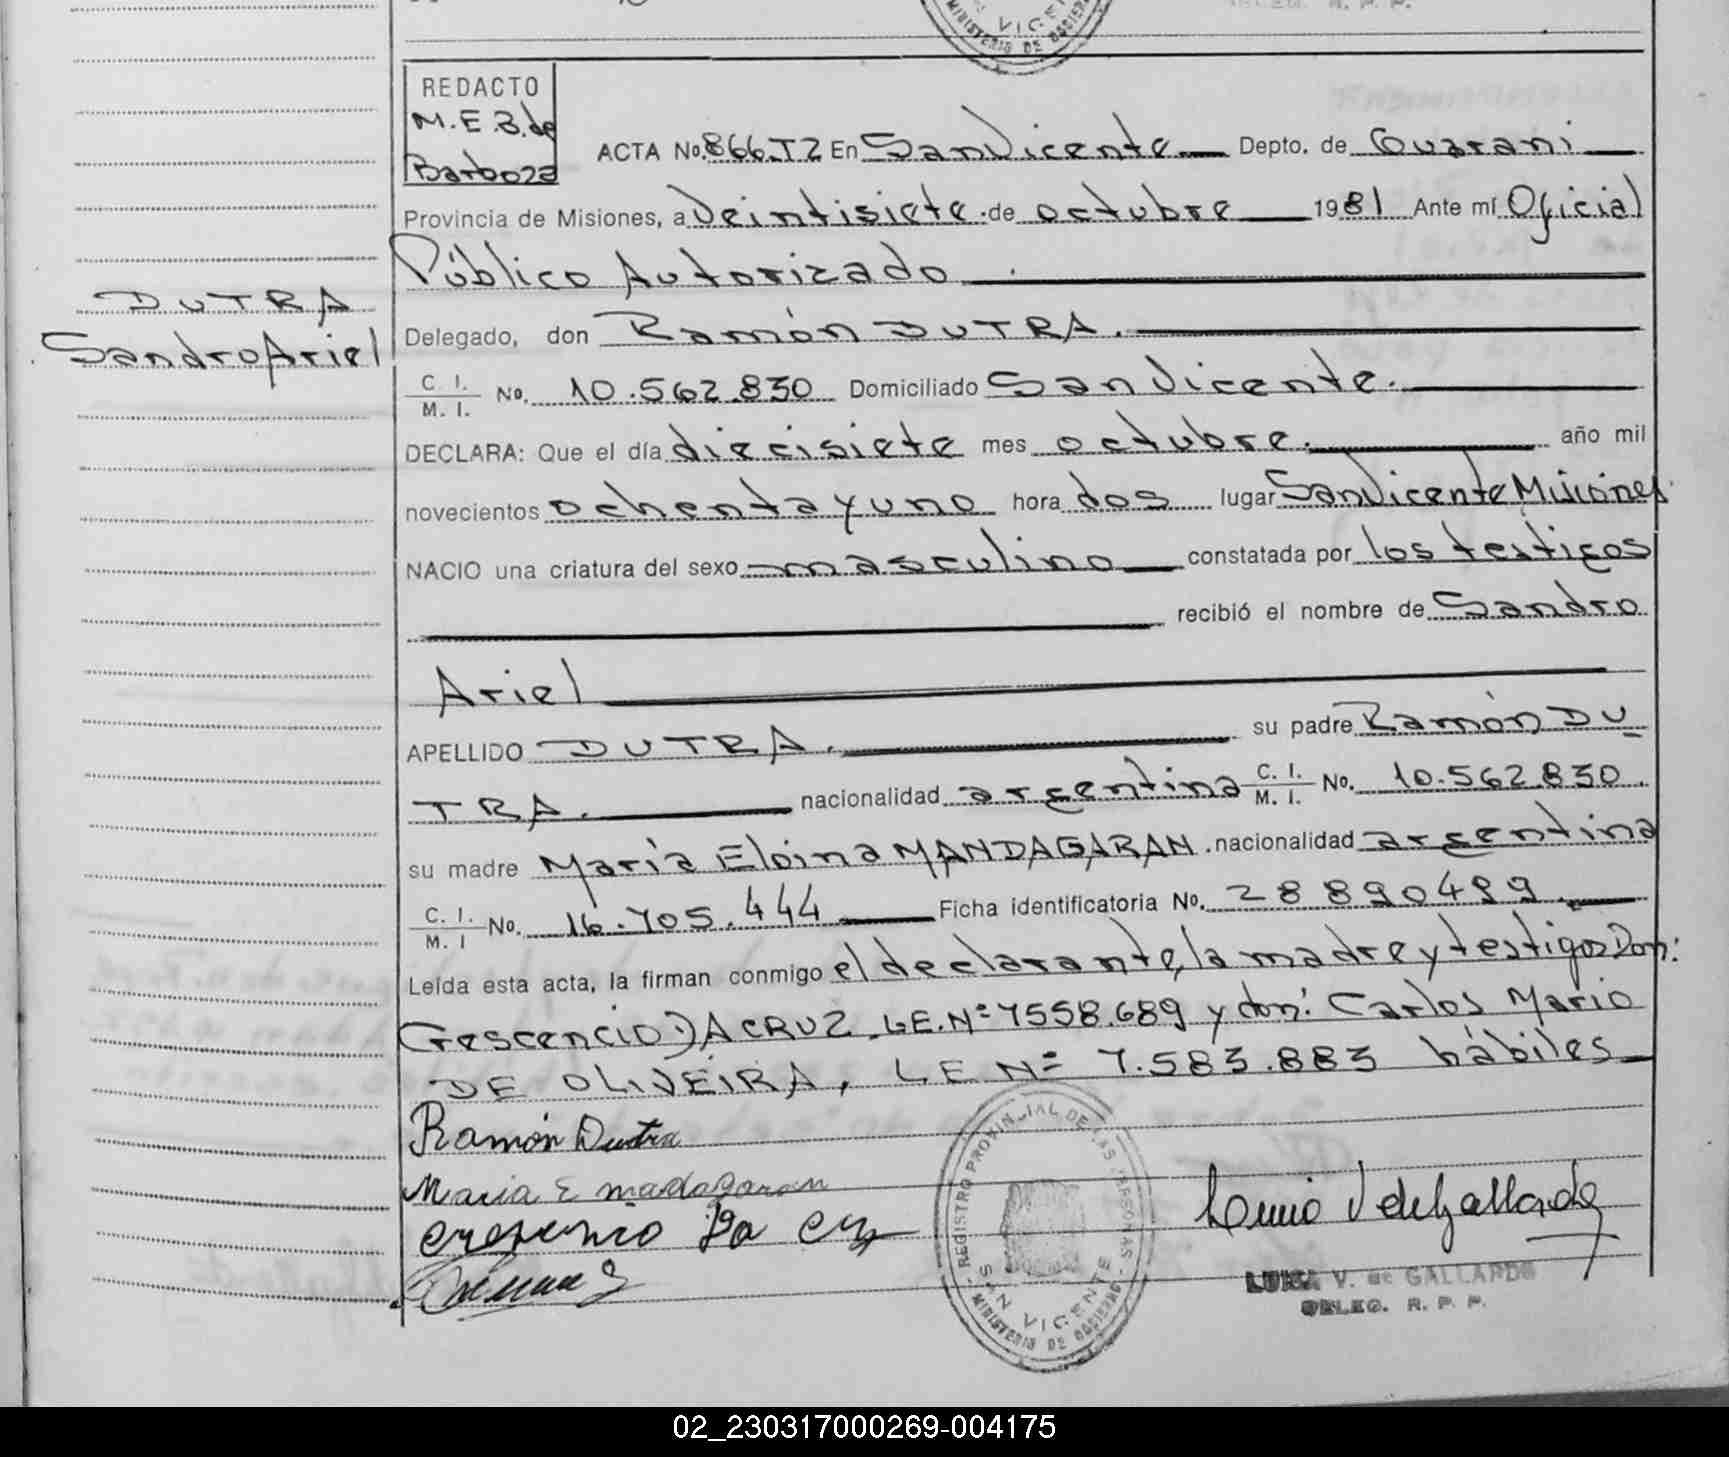 MINISTERIO DE GOBIERNO
REDACTO
M.E.B. de
Barboza
ACTA No. 866.T2 En San Vicente Depto. de Guarani
Provincia de Misiones, a veintisiete de octubre 1981 Ante mí Oficial
Público Autorizado
DUTRA
Sandro Ariel
Delegado, don Ramón DUTRA.
C. I. / M. I. No. 10.562.830 Domiciliado San Vicente.
DECLARA: Que el día diecisiete mes octubre. año mil
novecientos ochenta y uno hora dos lugar San Vicente Misiones
NACIO una criatura del sexo masculino constatada por los testigos
recibió el nombre de Sandro
Ariel
APELLIDO DUTRA. su padre Ramón DU
TRA. nacionalidad argentina C. I. / M. I. No. 10.562.830.
su madre María Eloina MANDAGARAN. nacionalidad argentina
C. I. / M. I No. 16.705.444 Ficha identificatoria No. 28890499
Leída esta acta, la firman conmigo el declarante, la madre y testigos Don:
Crescencio DACRUZ LE.Nº 7558.689 y don: Carlos Mario
DE OLIVEIRA, LE Nº 7.583.883 hábiles
Ramón Dutra
Maria E madagaran
crescencio Da cruz
REGISTRO PROVINCIAL DE LAS PERSONAS
SAN VICENTE
MINISTERIO DE GOBIERNO
LUISA V. de GALLARDO
DELEG. R. P. P.
02_230317000269-004175